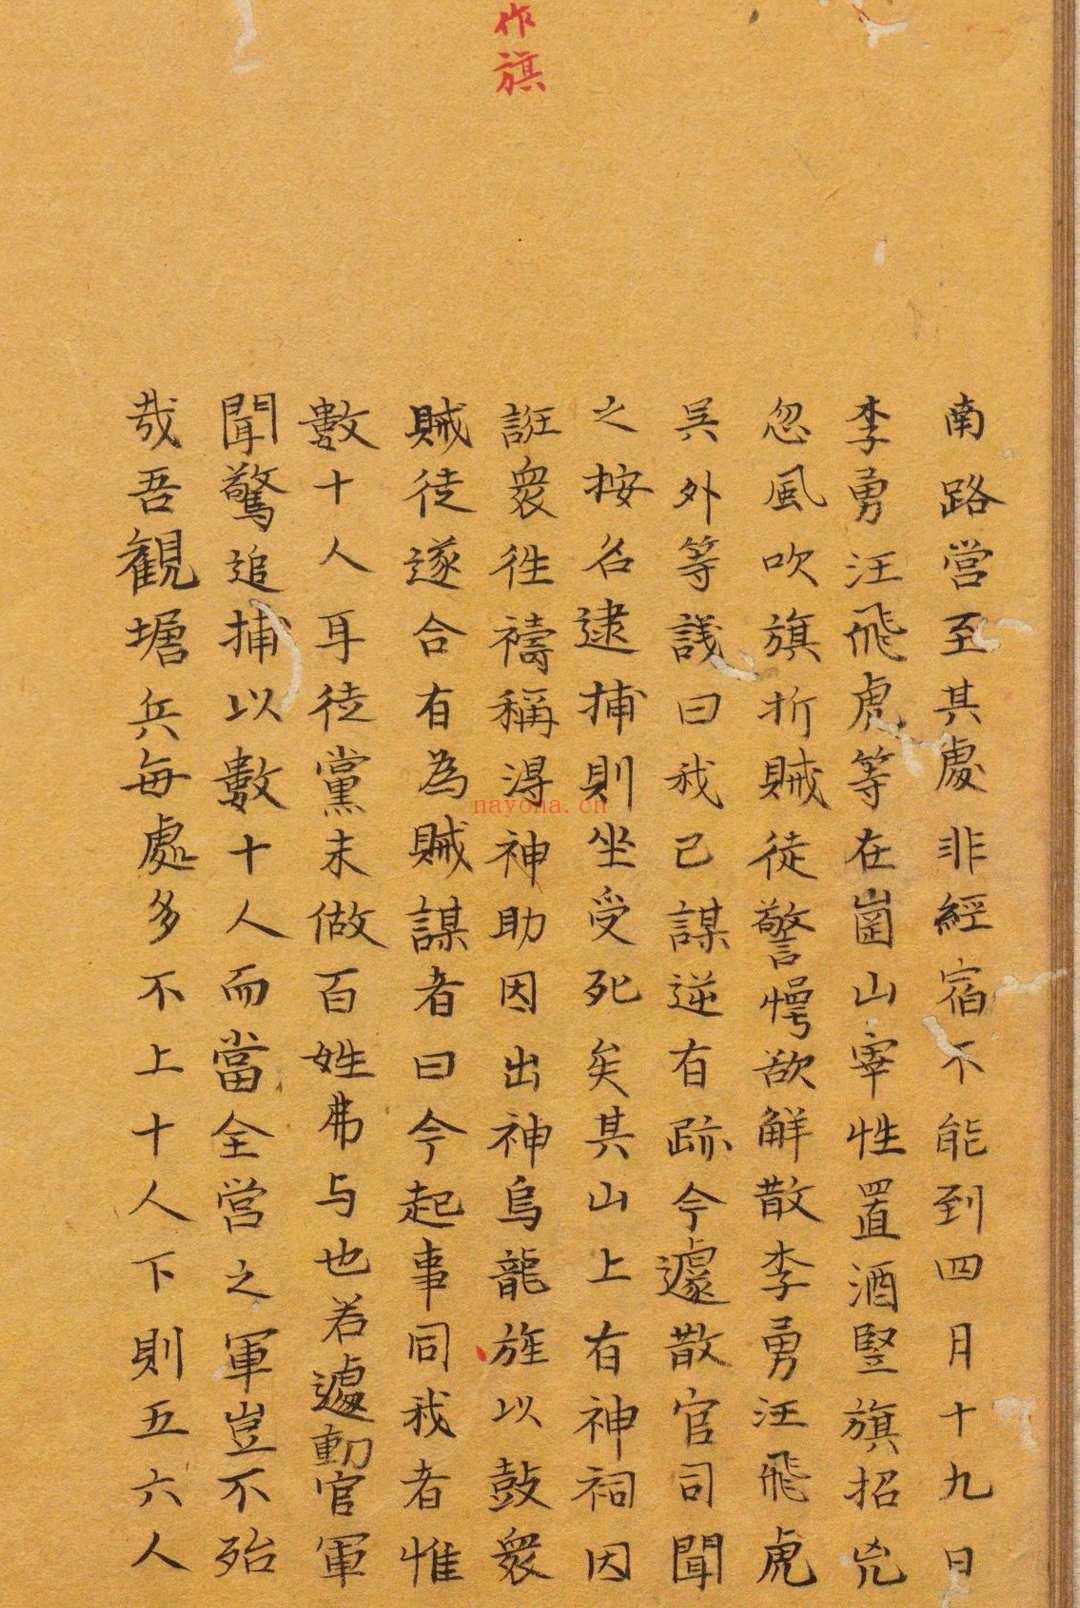 作旗
南路営至其處非經宿不能到四月十九日
李勇汪飛虎等在崮山宰性置酒竪旗招兇
忽風吹旗折賊徒警愕欲解散李勇汪飛虎
吳外等議曰我已謀逆有跡今遽散官司聞
之按名逮捕則坐受死矣其山上有神祠因
誑衆徃禱稱淂神助因出神烏龍旌以鼓衆
賊徒遂合有為賊謀者曰今起事同我者惟
數十人耳徒黨未做百姓弗与也若遽動官軍
聞驚追捕以數十人而當全営之軍豈不殆
哉吾觀塘兵每處多不上十人下則五六人
nayona.cn